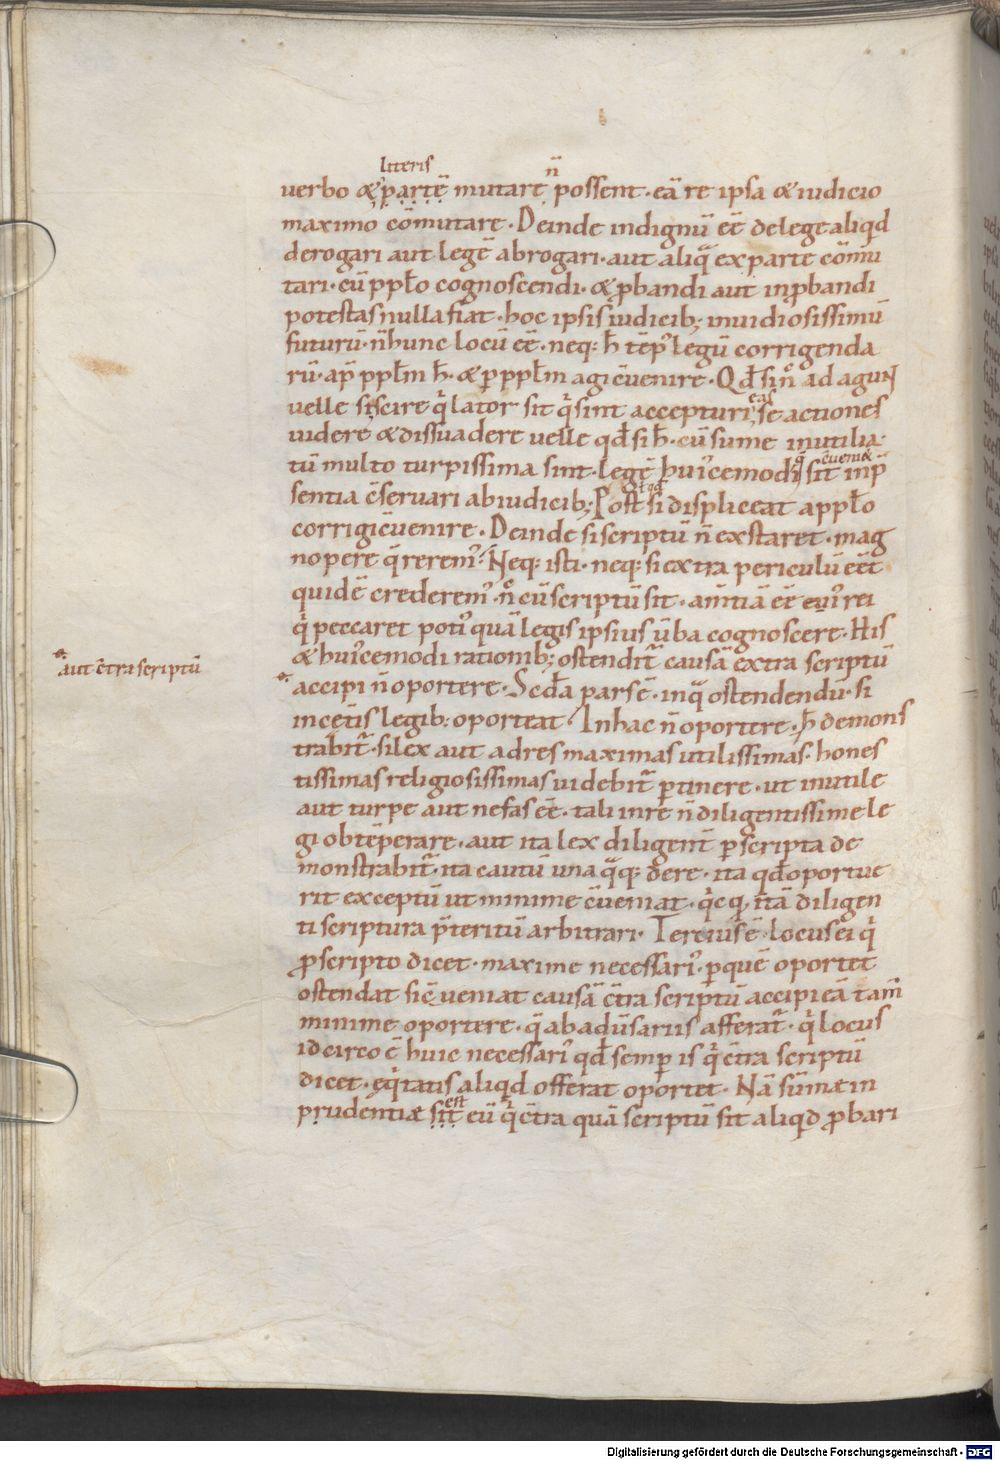 litteris
n̄
uerbo & partē mutare possent · eā re ipsa & iudicio
maximo cōmutare · Deinde indignū eē de lege aliqd
derogari aut legē abrogari · aut aliq̄ ex parte cōmu
tari · cū pplo cognoscendi · & p̱bandi aut inp̱bandi
potestas nulla fiat · hoc ipsis iudicib; inuidiosissimū
futurū · n̄ hunc locū eē · neq; h̄ tēp᾽ legū corrigenda
rū · ap̄ pplm h̄ · & p pplm agi c̄uenire · Qd si n̊ id agun
eas
uelle se scire q̍ lator sit q̍ sint accepturi, se actiones
uidere & dissuadere uelle qd si h̄ · cū sume inutilia ·
q̍ c̄ueni&
tū multo turpissima sint · legē hui᾽cemodi sit inp̄
sentia c̄seruari ab iudicib; Post si displiceat a pplo
corrigi c̄uenire · Deinde si scriptū n̄ exstaret · mag
nopere q̄rerem᾽ · Neq; isti · neq; si extra periculū eēt
quidē crederem᾽ · n̊ cū scriptū sit · am̄tiā eē ei᾽ rei
q̍ peccaret poti᾽ quā legis ipsius ūba cognoscere · His
& hui᾽cemodi rationib; ostendit̄ causā extra scriptū
aut c̄tra scriptū
accipi n̄ oportere · Scda pars ē · inq̄ ostendendū · si
in cet̄is legib; oporteat / In hac n̄ oportere · h̄ demons
trabit̄ · si lex aut ad res maximas utilissimas · hones
tissimas religiosissimas uidebit̄ p̱tinere · ut inutile
aut turpe aut nefas eē · tali in re n̄ diligentissime le
gi obtēperare · aut ita lex diligent̄ p̱scripta de
monstrabit̄ · ita cautū una q̄q; de re · ita qd oportue
rit exceptū ut minime c̄ueniat · q̍cq̄ · in tā diligen
ti scriptura p̄teritū arbitrari · Tercius ē · locus ei q̍
p̱ scripto dicet · maxime necessari᾽ · p̱ quē oportet
ostendat si c̄ueniat causā c̄tra scriptū accipi eā tam̄
minime oportere · q̄ ab adūsariis afferat̄ · q̍ locus
idcirco ē huic necessari᾽ qd semp̱ is q̍ c̄tra scriptū
dicet · eq̍tatis aliqd offerat oportet · Nā sūmæ in
est
prudentiæ sit eū q̍ c̄tra quā scriptū sit aliqd p̱bari